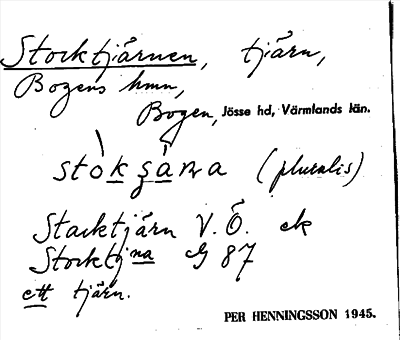 Stocktjärnen, tjärn,
Bogens hmn,
Bogen, Jösse hd, Värmlands län.
(pluralis)
Stacktjärn V. Ö. ek
Stocktjna G 87
ett tjärn.
PER HENNINGSSON 1945.